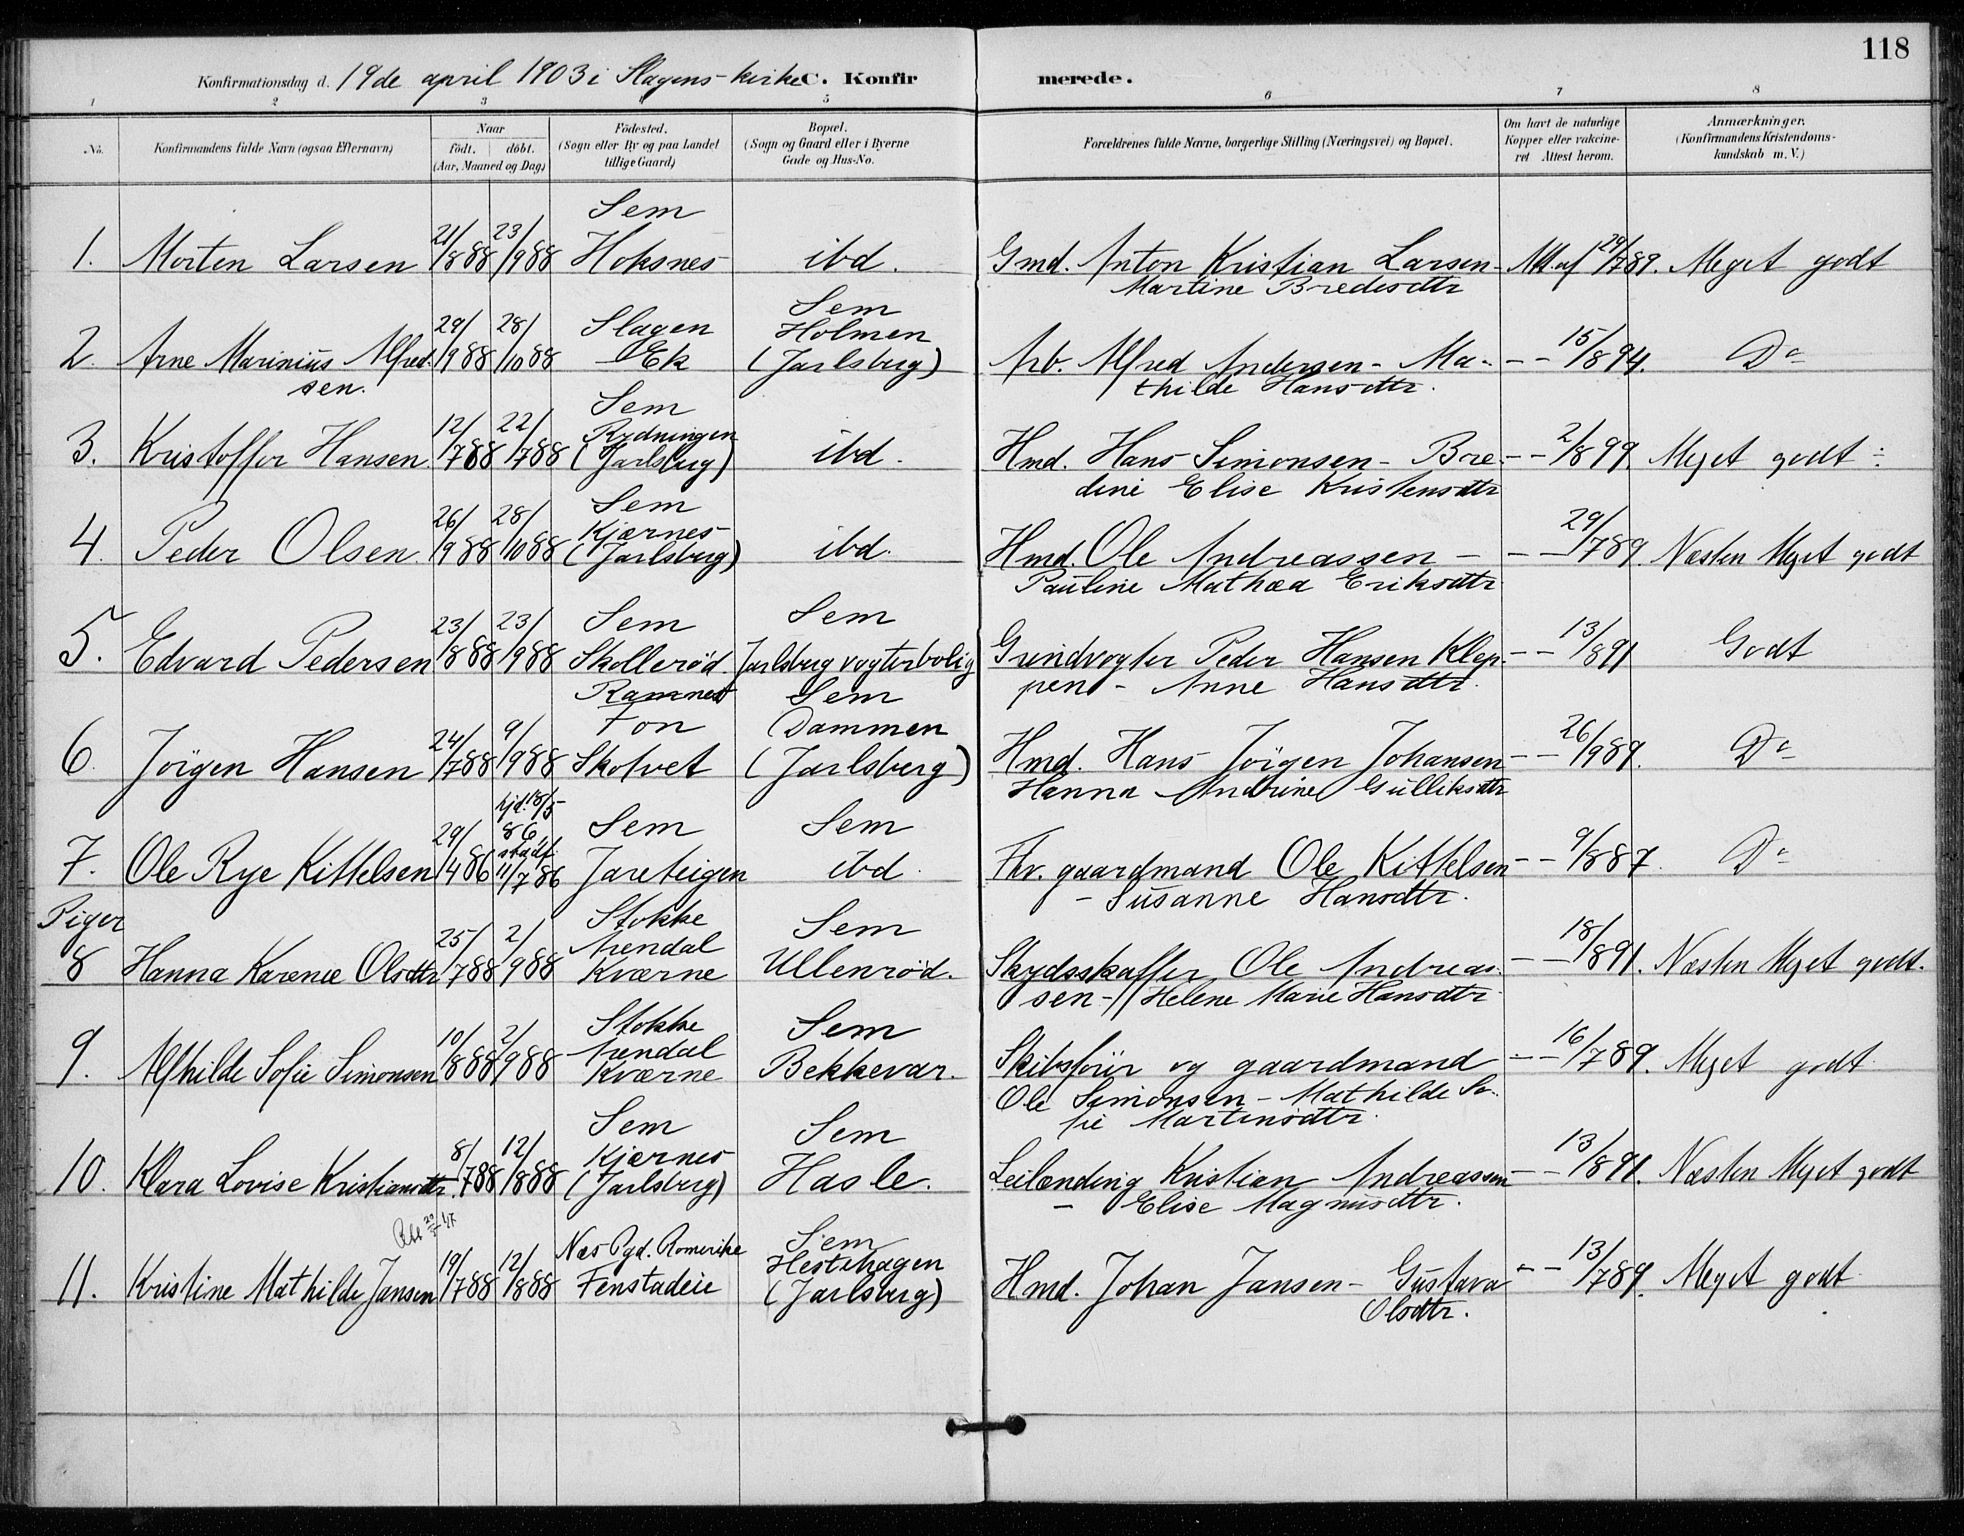 118
Konfirmationsdag d. 19de april 1903 i Slagens-kirke C. Konfirmerede.
1 2 3 5 6 7 8
No. Konfirmandens fulde Navn (ogsaa Efternavn) Naar født. døbt. (Aar, Maaned og Dag) Fødested. (Sogn eller By og paa Landet tillige Gaard) Bopæl. (Sogn og Gaard eller i Byerne Gade og Hus-No. Forældrenes fulde Navne, borgerlige Stilling (Næringsvei) og Bopæl. Om havt de naturlige Kopper eller vakcineret Attest herom. Anmærkninger. (Konfirmandens Kristendomskundskab m. V.)
Sem
1. Morten Larsen 21/8 88 23/9 88 Hoksnes ibd. Gmd. Anton Kristian Larsen - Att. af 29/7 89. Meget godt
Martine Bredesdtr
Sem
2. Arne Marinius Alfred- 29/9 88 28/10 88 Slagen Ek Holmen (Jarlsberg) Arb. Alfred Andersen - Ma- - - 15/8 94. Do
sen. thilde Hansdtr.
Sem
3. Kristoffer Hansen 12/7 88 22/7 88 Rydningen (Jarlsberg) ibd. Hmd. Hans Simonsen - Bre- - - 2/8 99. Meget godt ÷
dine Elise Kristensdtr
Sem
4. Peder Olsen. 26/9 88 28/10 88 Kjærnes (Jarlsberg) ibd. Hmd. Ole Andreassen - - - 29/7 89. Næsten Meget godt
Pauline Mathea Eriksdtr
Sem Sem
5. Edvard Pedersen 23/8 88 23/9 88 Skollerød. Jarlsberg vogterbolig Grindvogter Peder Hansen Klep- - - 13/8 91 Godt
pen - Anne Hansdtr.
Ramnes Sem
Fon Dammen
6. Jörgen Hansen 24/7 88 9/9 88 Skofvet (Jarlsberg) Hmd. Hans Jörgen Johansen - - 26/9 89. Do
Hanna Andrine Gulliksdtr
hjd. 18/5 86, stadf. Sem Sem
7. Ole Rye Kittelsen 29/4 86 11/7 86 Jareteigen ibd. Fhv. gaardmand Ole Kittelsen - - 9/8 87. Do
- Susanne Hansdtr.
Piger Stokke Sem
8 Hanna Karenie Olsdtr 25/7 88 2/9 88 Arendal Kværne Ullenrød. Skydsskaffer Ole Andreas- - - 18/8 91. Næsten Meget godt.
sen - Helene Marie Hansdtr
Stokke Sem
9. Alfhilde Sofie Simonsen 10/8 88 2/9 88 Arendal Kværne Bekkevar. Skibsförer og gaardmand - - 16/7 89. Meget godt
Ole Simonsen - Mathilde So-
fie Martinsdtr.
Sem Sem
10. Klara Lovise Kristiansdtr. 8/7 88 12/8 88 Kjærnes (Jarlsberg) Hasle. Leilending Kristian Andreassen - - 13/8 91. Næsten Meget godt
- Elise Magnusdtr.
Næs Pgd. Romerike Sem
11. Kristine Mathilde Jansen 19/7 88 12/8 88 Fenstadeie Hestehagen (Jarlsberg) Hmd. Johan Jansen - Gustava - - 13/7 89. Meget godt
Olsdtr.